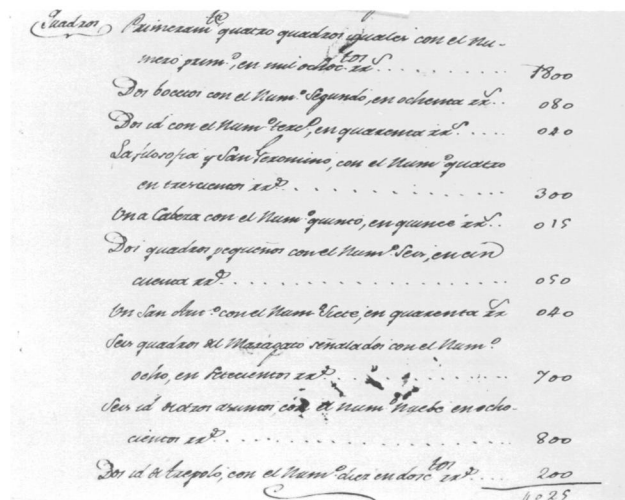 Quadros Primeramte quatro quadros iguales con el Nu-
mero prim.º, en mil ochoc.tos rr.s . . . . . . . . . 1800
Dos bocetos con el Num.º Segundo, en ochenta rr.s . . 080
Dos id con el Num.º terc.º, en quarenta rr.s . . . . . 040
La filosofia y San Geronimo, con el Num.º quatro
en trescientos rr.s . . . . . . . . . . . . . 300
Una Cabeza con el Num.º quinto, en quince rr.s . . 015
Dos quadros pequeños con el Num.º Seis, en cin
cuenta rr.s . . . . . . . . . . . . . . . . 050
Un San Ant.º con el Num.º Siete, en quarenta rr.s 040
Seis quadros del Maragato señalados con el Num.º
ocho, en Setecientos rr.s . . . . . . . . . . 700
Seis id de otros asuntos, con el Num.º Nuebe en ocho-
cientos rr.s . . . . . . . . . . . . . . . . 800
Dos id de tiepolo, con el Num.º diez en dosc.tos rr.s . . . . 200
4025